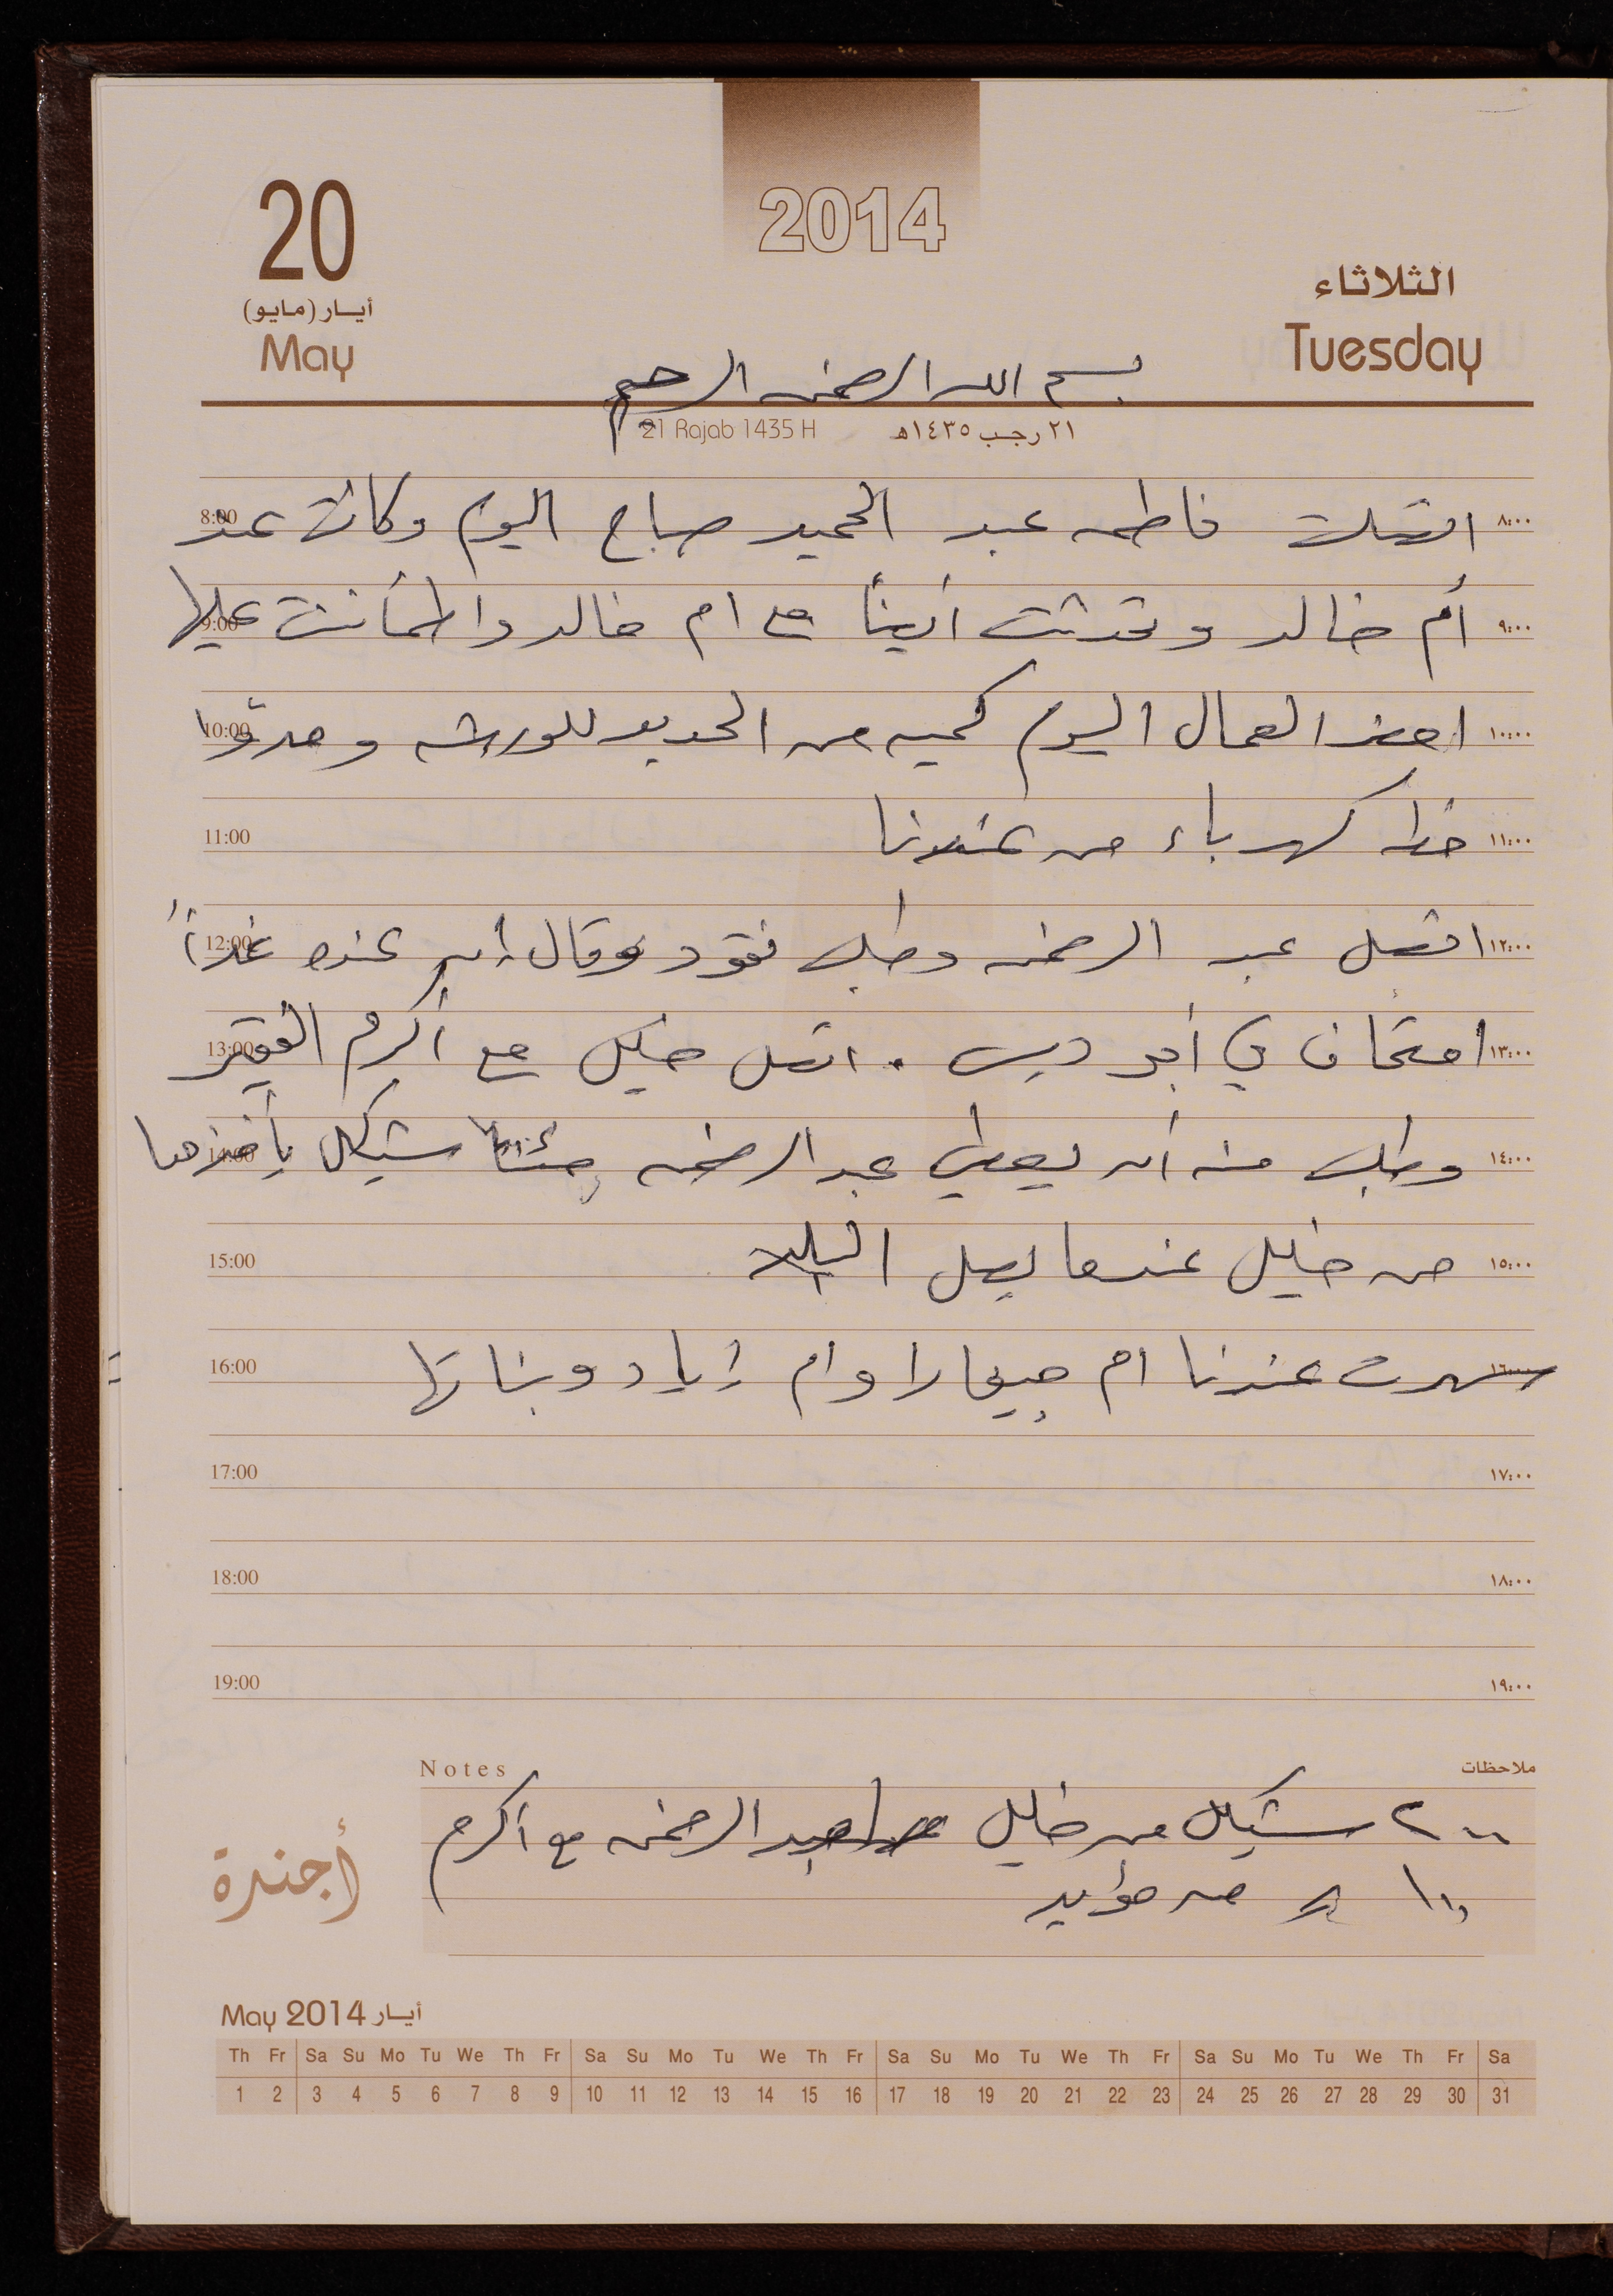 2014
20
أيار (مايو)
May
الثلاثاء
Tuesday
بسم الله الرحمن الرحيم
21 Rajab 1435 H ٢١ رجب ١٤٣٥هـ
8:00 اتصلت فاطمه عبد الحميد صباح اليوم وكانت عند ٨:٠٠
9:00 أم خالد وتحدثت أيضاً مع ام خالد واطمأنت عليها ٩:٠٠
10:00 احضر العمال اليوم كميه من الحديد للورشه ومدوّا ١٠:٠٠
11:00 خط كهرباء من عندنا ١١:٠٠
12:00 اتصل عبد الرحمن وطلب نقود وقال أن عنده غداً ١٢:٠٠
13:00 امتحان في أبو ديس . اتصل خليل مع أكرم الفقير ١٣:٠٠
14:00 وطلب منه أن يعطي عبد الرحمن شيكل يأخذها ١٤:٠٠
15:00 من خليل عندما يصل البلد ١٥:٠٠
16:00 سهرت عندنا ام جيفارا وام زياد وبناتها ١٦:٠٠
17:00 ١٧:٠٠
18:00 ١٨:٠٠
19:00 ١٩:٠٠
Notes ملاحظات
٢٠٠ شيكل من خليل الرحمن مع أكرم
١٠٠ من مؤيد
أجندة
May 2014 أيار
Th Fr Sa Su Mo Tu We Th Fr Sa Su Mo Tu We Th Fr Sa Su Mo Tu We Th Fr Sa Su Mo Tu We Th Fr Sa
1 2 3 4 5 6 7 8 9 10 11 12 13 14 15 16 17 18 19 20 21 22 23 24 25 26 27 28 29 30 31